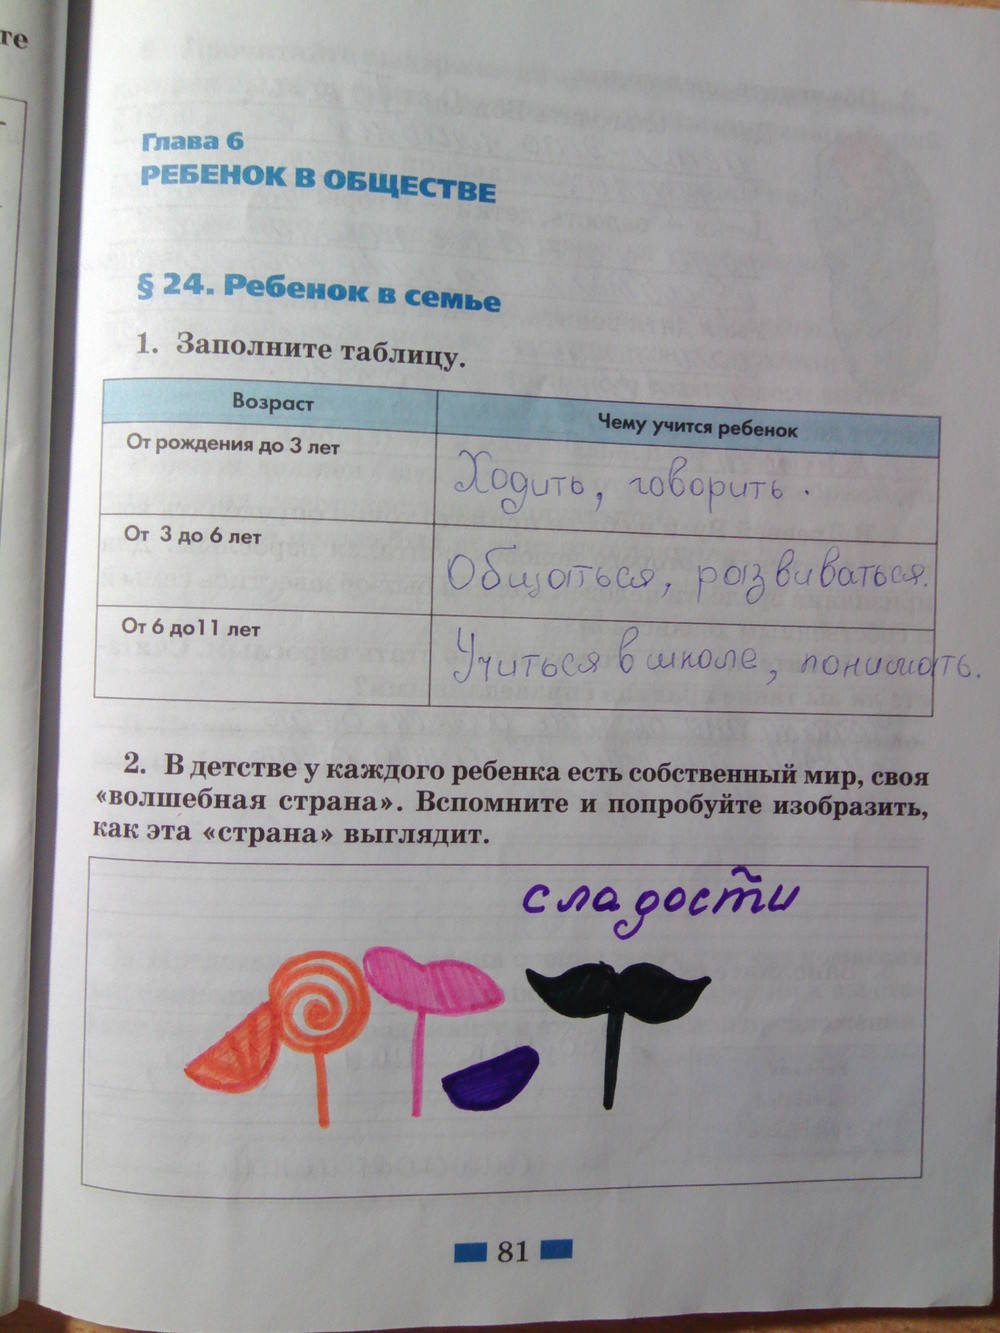 те
Глава 6
РЕБЕНОК В ОБЩЕСТВЕ
§ 24. Ребенок в семье
1. Заполните таблицу.
Возраст
Чему учится ребенок
От рождения до 3 лет
Ходить, говорить.
От 3 до 6 лет
Общаться, развиваться.
От 6 до11 лет
Учиться в школе, понимать.
2. В детстве у каждого ребенка есть собственный мир, своя
«волшебная страна». Вспомните и попробуйте изобразить,
как эта «страна» выглядит.
сладости
81